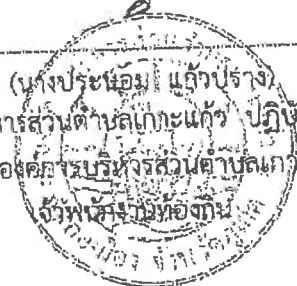 (นางประนอม แก้วปราง)
การส่วนตำบลเกาะแก้ว ปฏิบั
องค์การบริหารส่วนตำบลเกา
เจ้าพนักงานท้องถิ่น